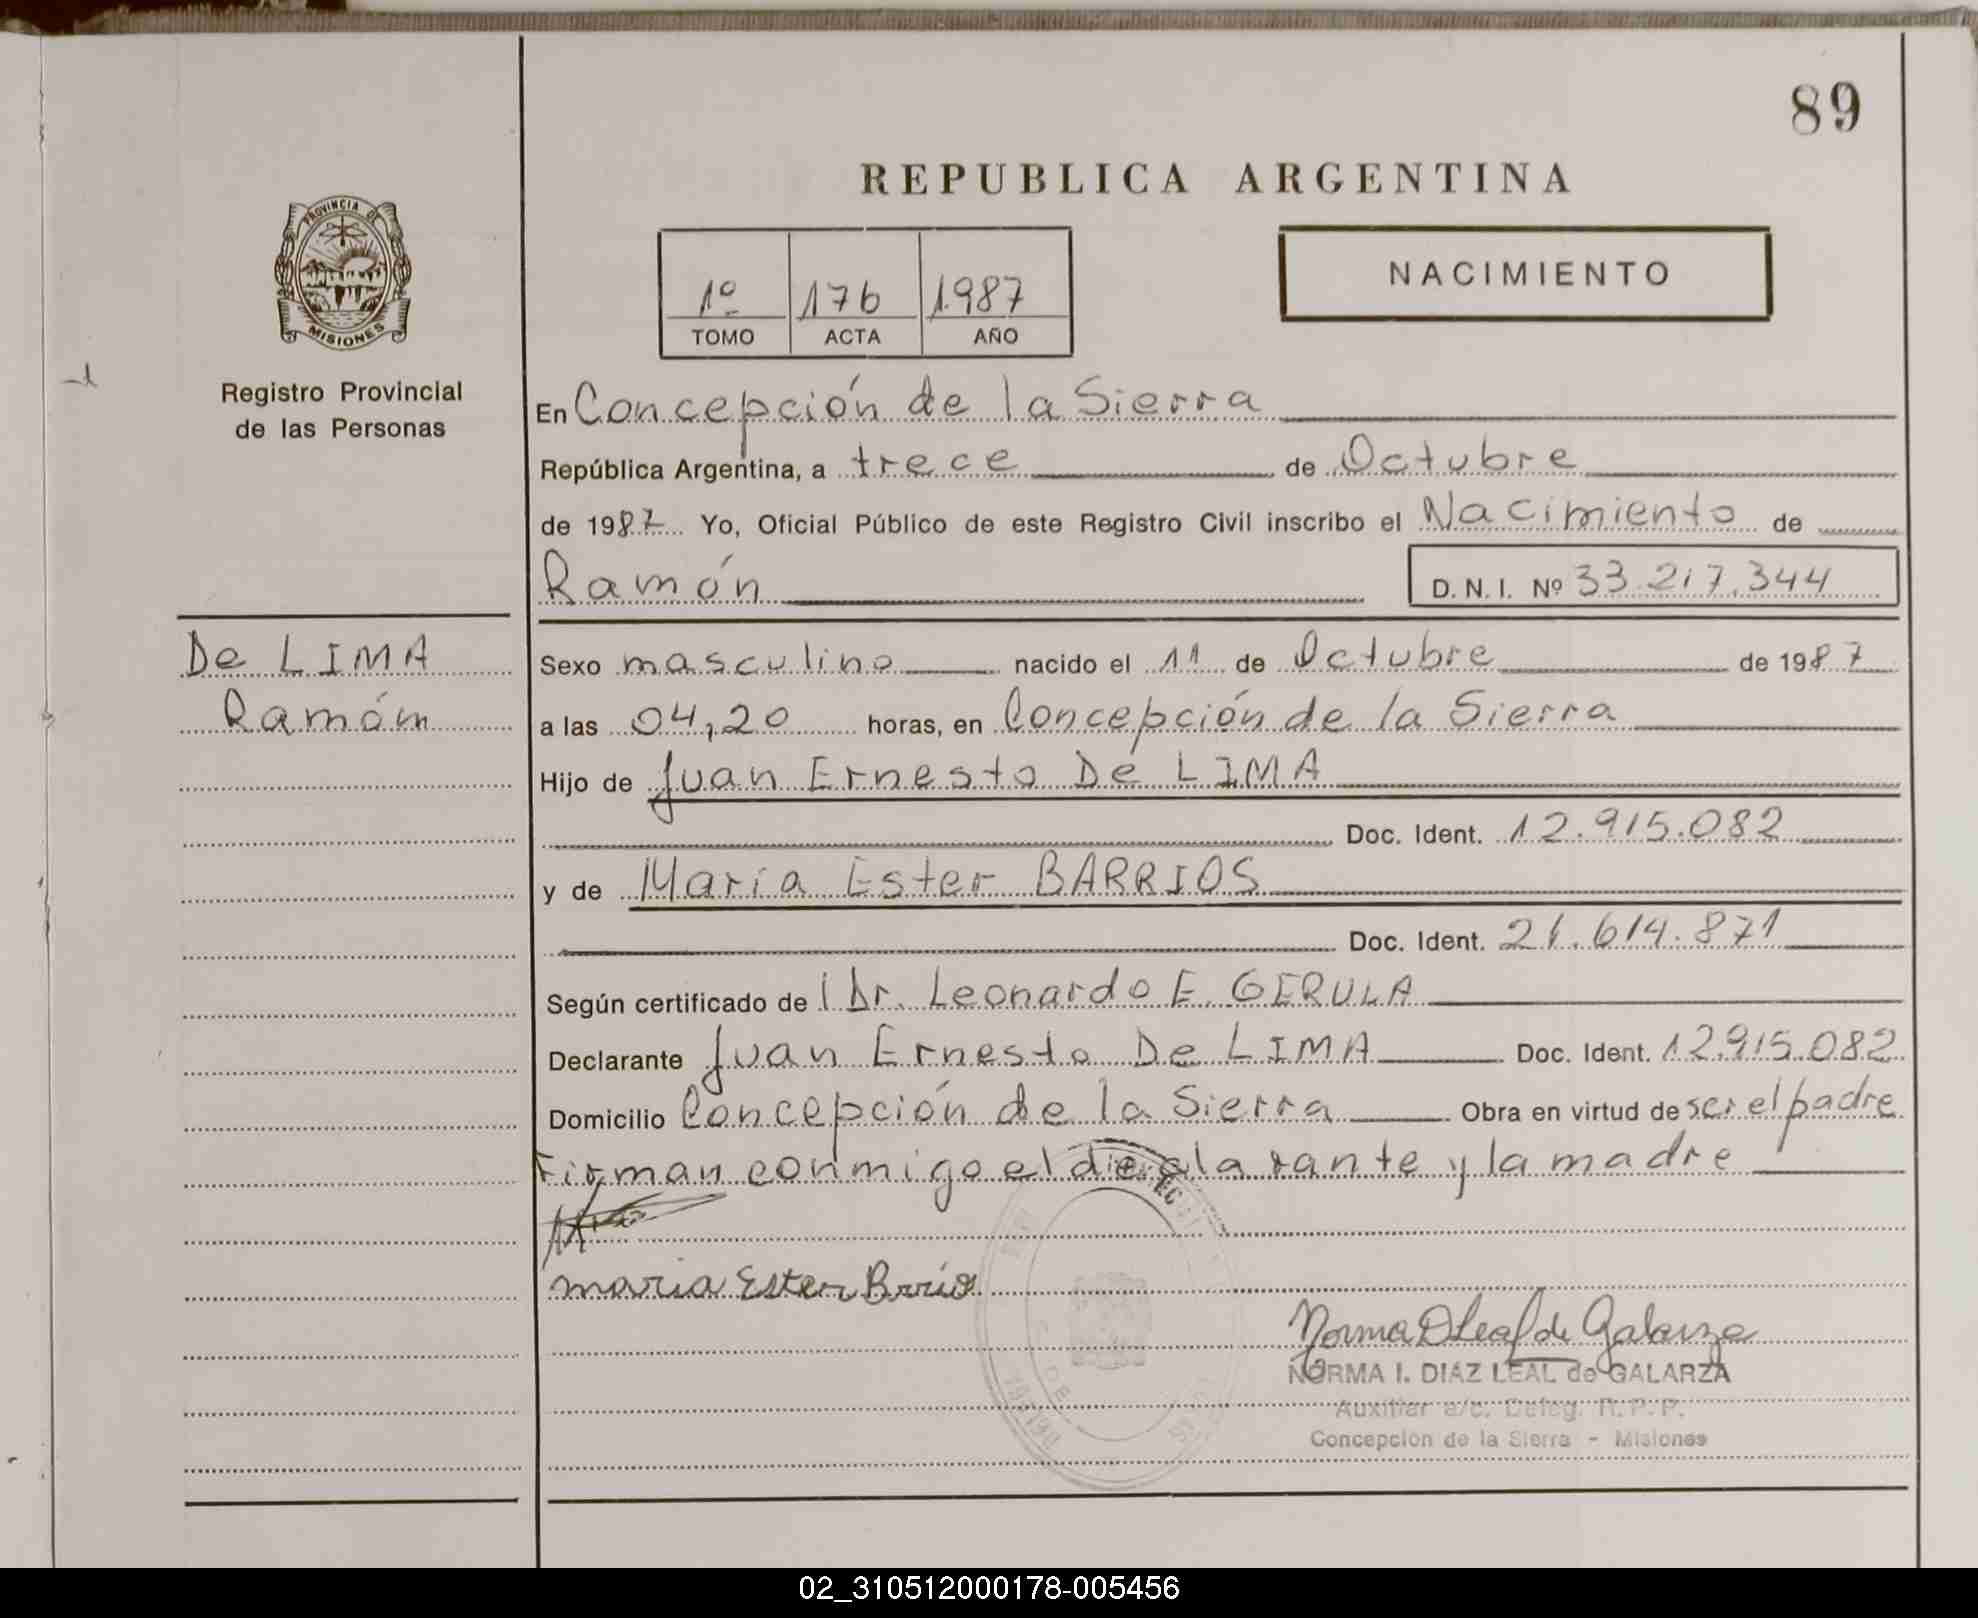 89
REPUBLICA ARGENTINA
PROVINCIA DE
MISIONES
Registro Provincial
de las Personas
1º 176 1987
TOMO ACTA AÑO
NACIMIENTO
En Concepción de la Sierra
República Argentina, a trece de Octubre
de 1987 Yo, Oficial Público de este Registro Civil inscribo el Nacimiento de
Ramón
D. N. I. Nº 33.217.344
De LIMA
Ramón
Sexo masculino nacido el 11 de Octubre de 1987
a las 04,20 horas, en Concepción de la Sierra
Hijo de Juan Ernesto De LIMA
Doc. Ident. 12.915.082
y de María Ester BARRIOS
Doc. Ident. 21.614.871
Según certificado del Dr. Leonardo E. GERULA
Declarante Juan Ernesto De LIMA Doc. Ident. 12.915.082
Domicilio Concepción de la Sierra Obra en virtud de ser el padre
Firman conmigo el declarante y la madre
maria Ester Brrios
Norma D Leal de Galarza
NORMA I. DIAZ LEAL de GALARZA
Auxiliar a/c. Deleg. R. P. P.
Concepcion de la Sierra - Misiones
02_310512000178-005456